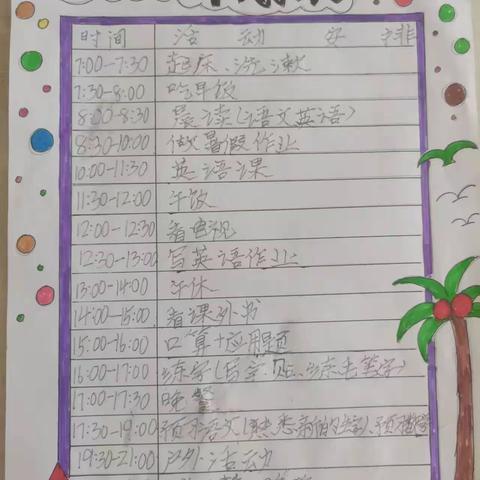 时间 活动安排
7:00-7:30 起床、洗漱
7:30-8:00 吃早饭
8:00-8:30 晨读(语文英语)
8:30-10:00 做暑假作业
10:00-11:30 英语课
11:30-12:00 午饭
12:00-12:30 看电视
12:30-13:00 写英语作业
13:00-14:00 午休
14:00-15:00 看课外书
15:00-16:00 口算+应用题
16:00-17:00 练字(写字贴、练毛笔字)
17:00-17:30 晚餐
17:30-19:00 预习语文(熟悉新的生字)、预习数学
19:30-21:00 户外活动